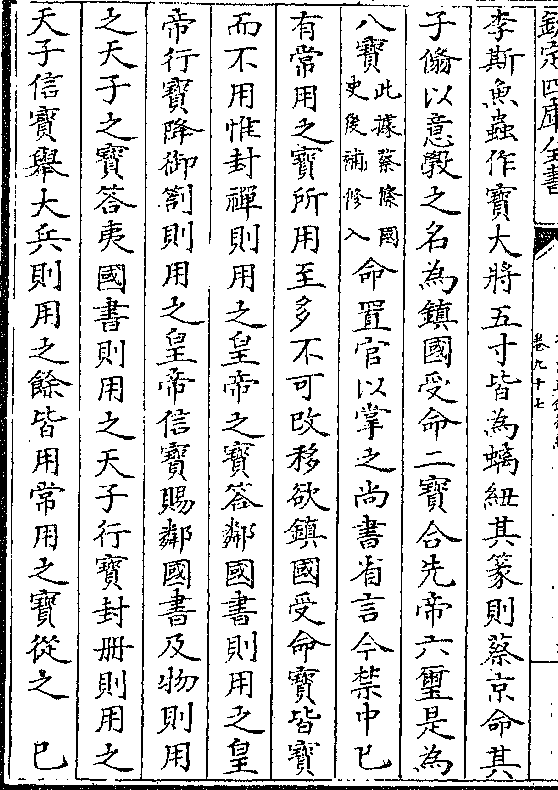 欽定四庫全書
卷九十七
李斯魚蟲作寶大將五寸皆為螭紐其篆則蔡京命其
子翛以意斅之名為鎮國受命二寶合先帝六璽是為
八寶此據蔡絛國史後補修入命置官以掌之尚書省言今禁中已
有常用之寶所用至多不可改移欲鎮國受命寶皆寶
而不用惟封禪則用之皇帝之寶答鄰國書則用之皇
帝行寶降御劄則用之皇帝信寶賜鄰國書及物則用
之天子之寶答夷國書則用之天子行寶封册則用之
天子信寶舉大兵則用之餘皆用常用之寶從之　已